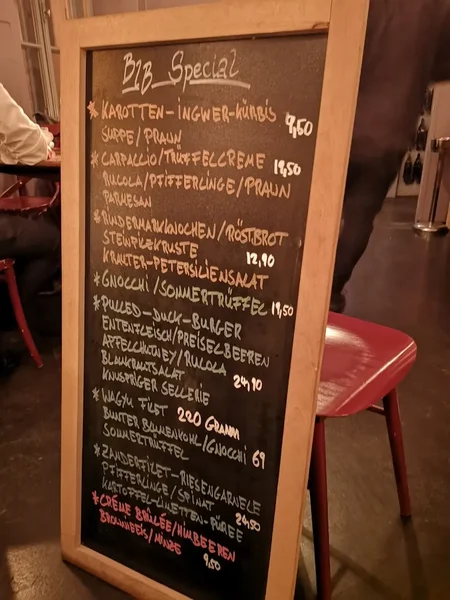 B2B Special
* KAROTTEN-INGWER-KÜRBIS
SUPPE/PRAWN 9,50
* CARPACCIO/TRÜFFELCREME
RUCOLA/PFIFFERLINGE/PRAWN 19,50
PARMESAN
* RINDERMARKKNOCHEN/RÖSTBROT
STEINPILZKRUSTE 12,90
KRÄUTER-PETERSILIENSALAT
* GNOCCHI/SOMMERTRÜFFEL 19,50
* PULLED-DUCK-BURGER
ENTENFLEISCH/PREISELBEEREN
APFELCHUTNEY/RUCOLA
BLAUKRAUTSALAT 24,90
KNUSPRIGER SELLERIE
* WAGYU FILET 220 GRAMM
BUNTER BLUMENKOHL/GNOCCHI 69
SOMMERTRÜFFEL
* ZANDERFILET-RIESENGARNELE
PFIFFERLINGE/SPINAT
KARTOFFEL-LIMETTEN-PÜREE 24,50
* CRÈME BRÛLÉE/HIMBEEREN
BROWNIEEIS/MINZE 9,50